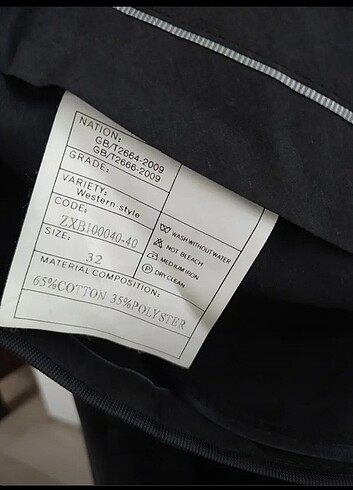 NATION:
GB/T2664-2009
GB/T2666-2009
GRADE:
VARIETY:
Western-style
CODE:
ZXB100040-40
SIZE:
32
WASH WITHOUT WATER
NOT BLEACH
MEDIUM IRON
P DRY CLEAN
MATERIAL COMPOSITION:
65%COTTON 35%POLYSTER